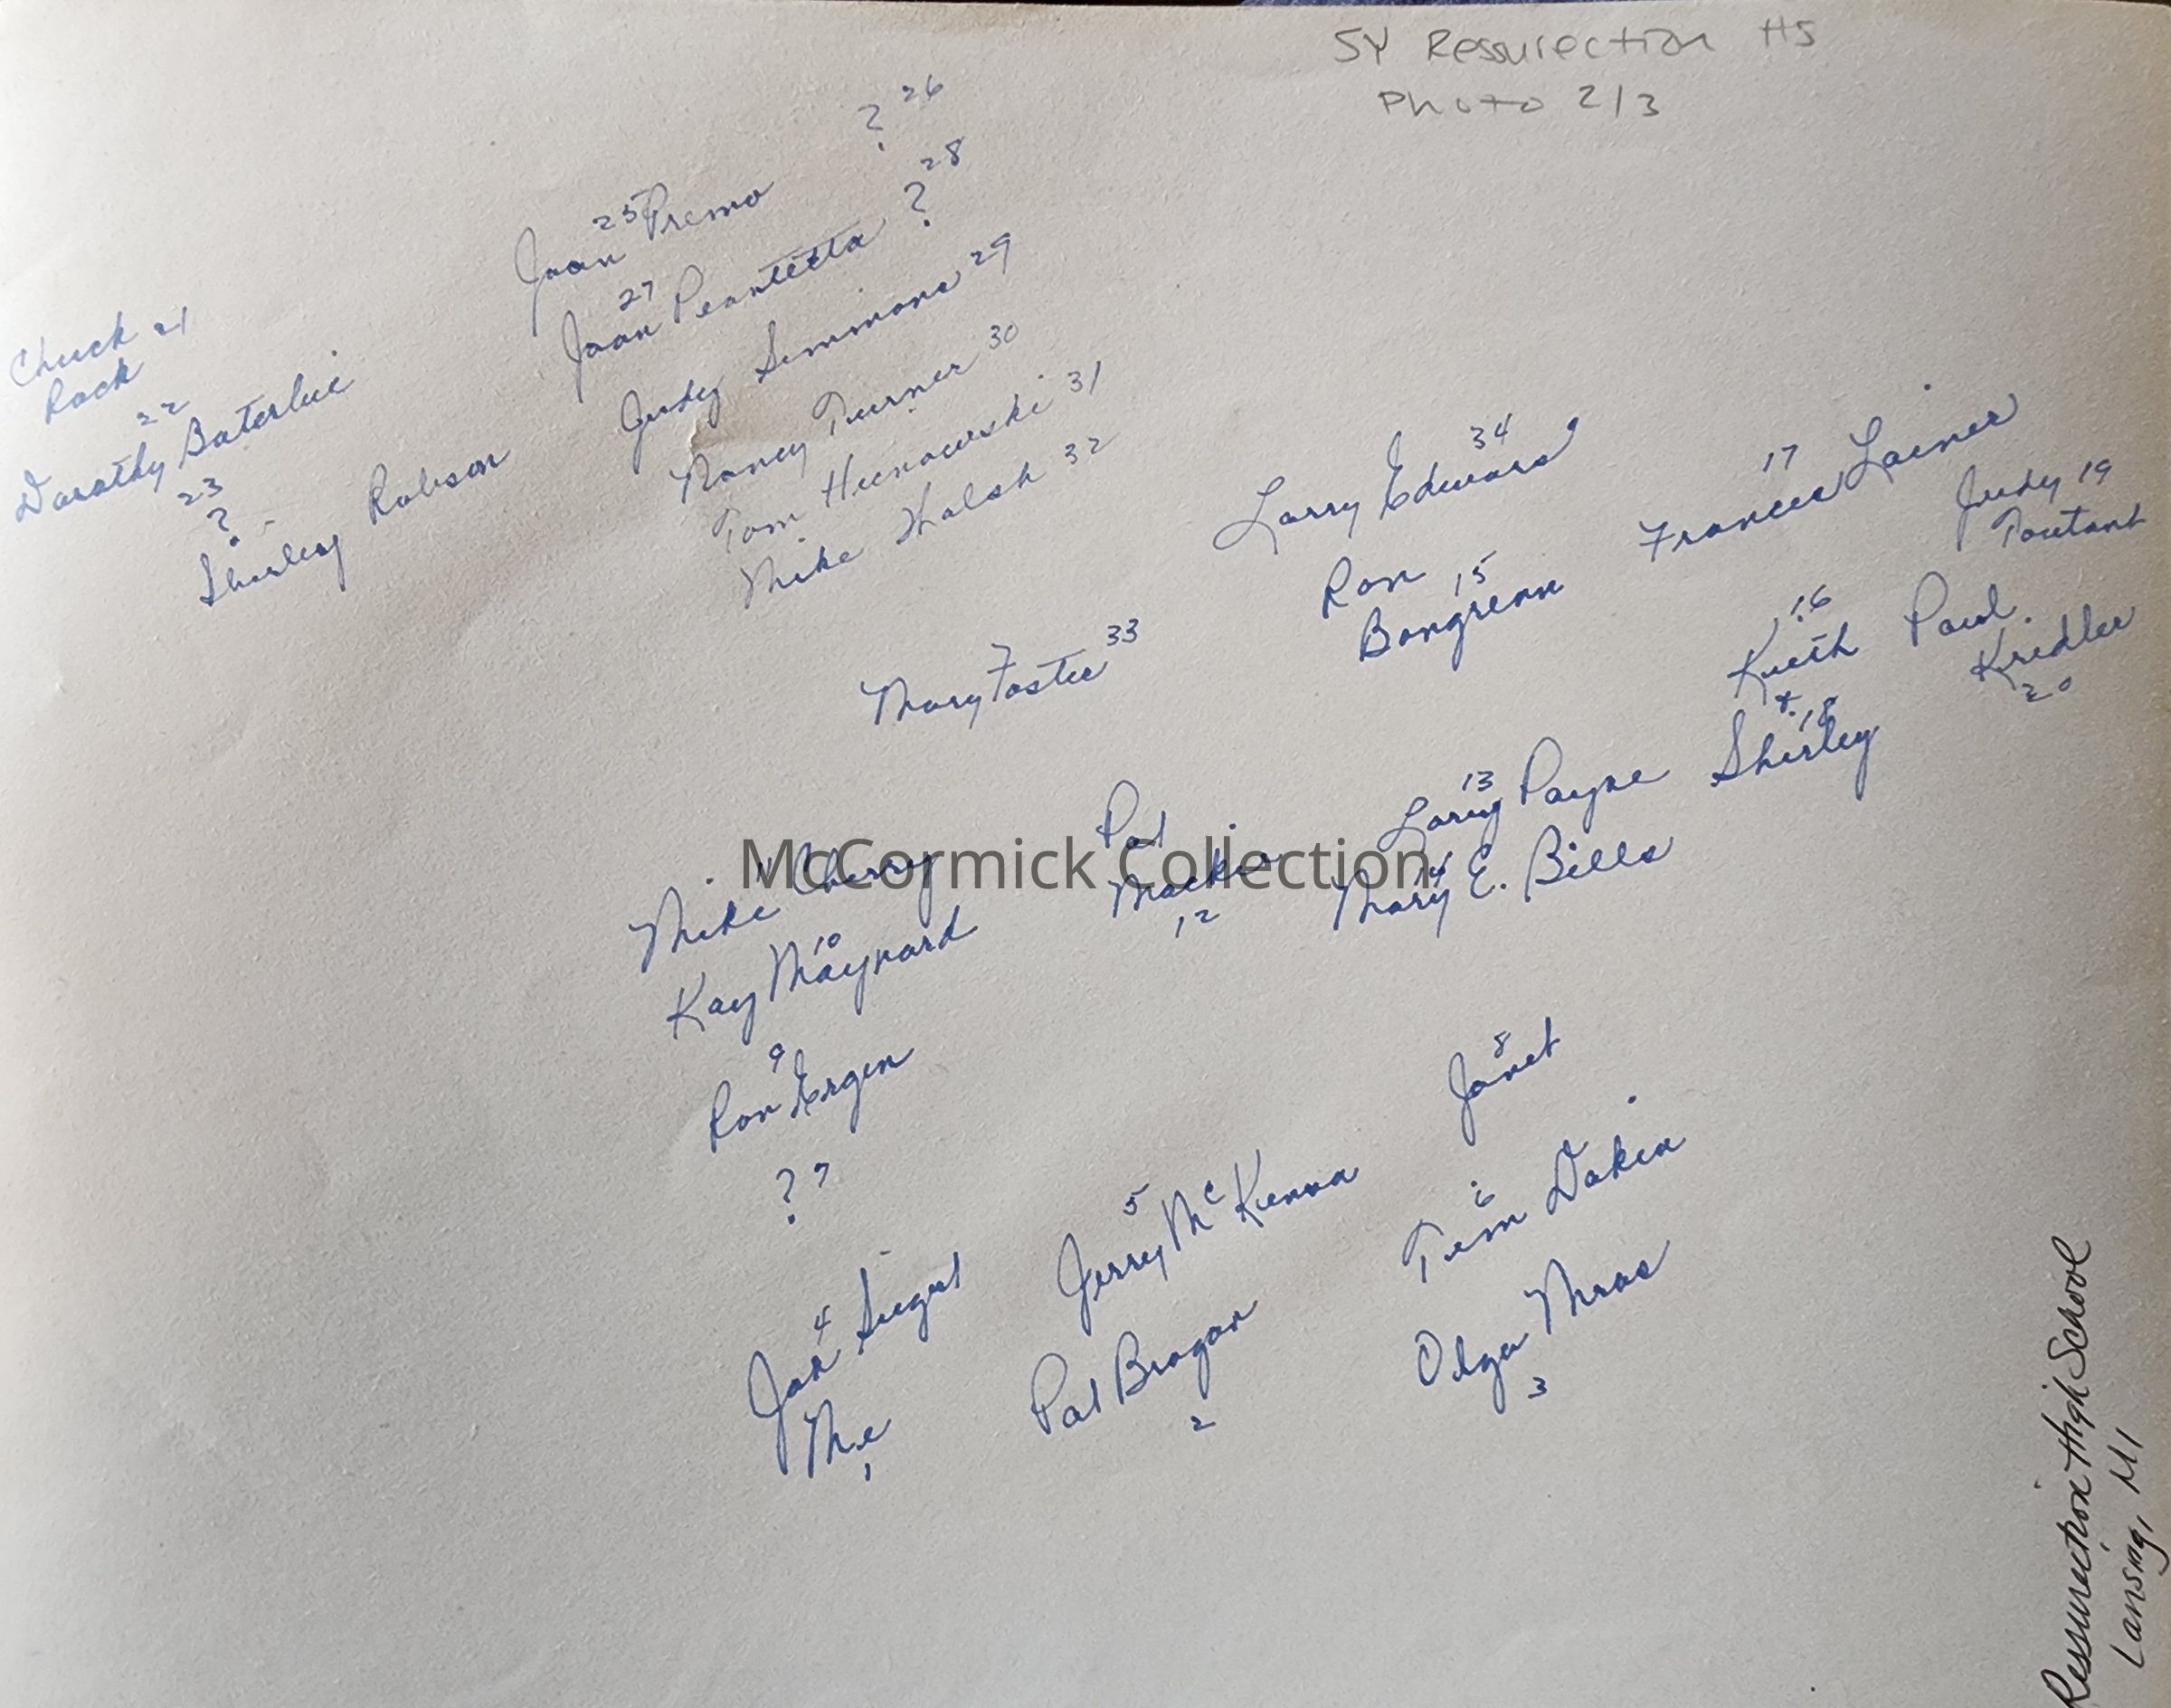 54 Ressurection HS
Photo 2/3
? 26
25
Joan Premo
? 28
27
Joan Peantetta
Judy Simmons 29
Nancy Turner 30
Tom 31
Mike Walsh 32
Chuck 21
Rock
22
Dorothy
23
?
Shirley Robson
34
Larry Edward
17
Frances Lainer
Judy 19
Toutant
Ron 15
Bongrenn
16
Kieth
& 18
Shirley
Paul
Kridler
20
Mary Foster 33
11
Mike Cherry
Pat
Mackie
12
13
Larry Payne
14
Mary E. Bills
McCormick Collection
10
Kay Maynard
9
Ron Ergen
? 7
8
Janet
5
Jerry McKenna
6
Tim Dakin
4
Jan
Me
1
Pat Brogan
2
Olga Mras
3
Ressurection High School
Lansing, MI